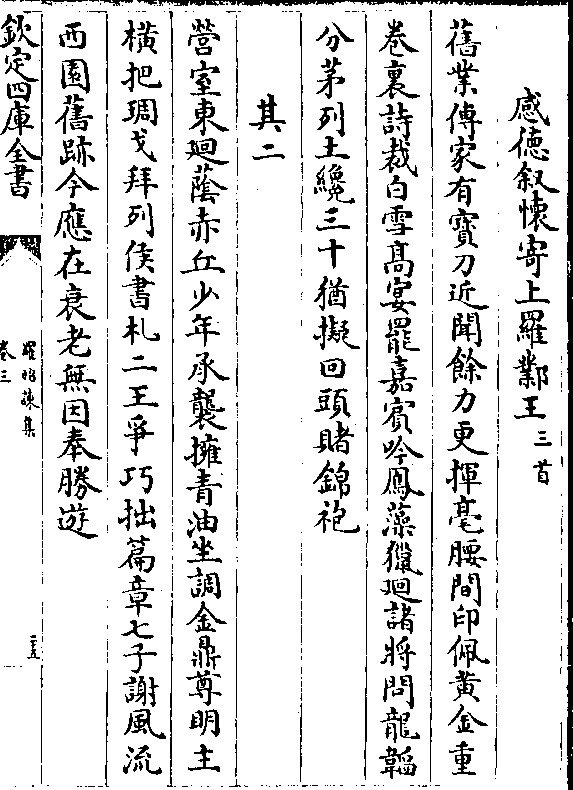 感德叙懷寄上羅鄴王三首
舊業傳家有寳刀近聞餘力更揮毫腰間印佩黄金重
卷裏詩裁白雪高宴罷嘉賓吟鳳藻獵廻諸將問龍韜
分茅列土纔三十猶擬回頭賭錦袍
其二
營室東廻䕃赤丘少年承襲擁青油坐調金鼎尊明主
横把琱戈拜列侯書札二王爭巧拙篇章七子謝風流
西園舊跡今應在衰老無因奉勝遊
欽定四庫全書
羅昭諫集
卷三
二五